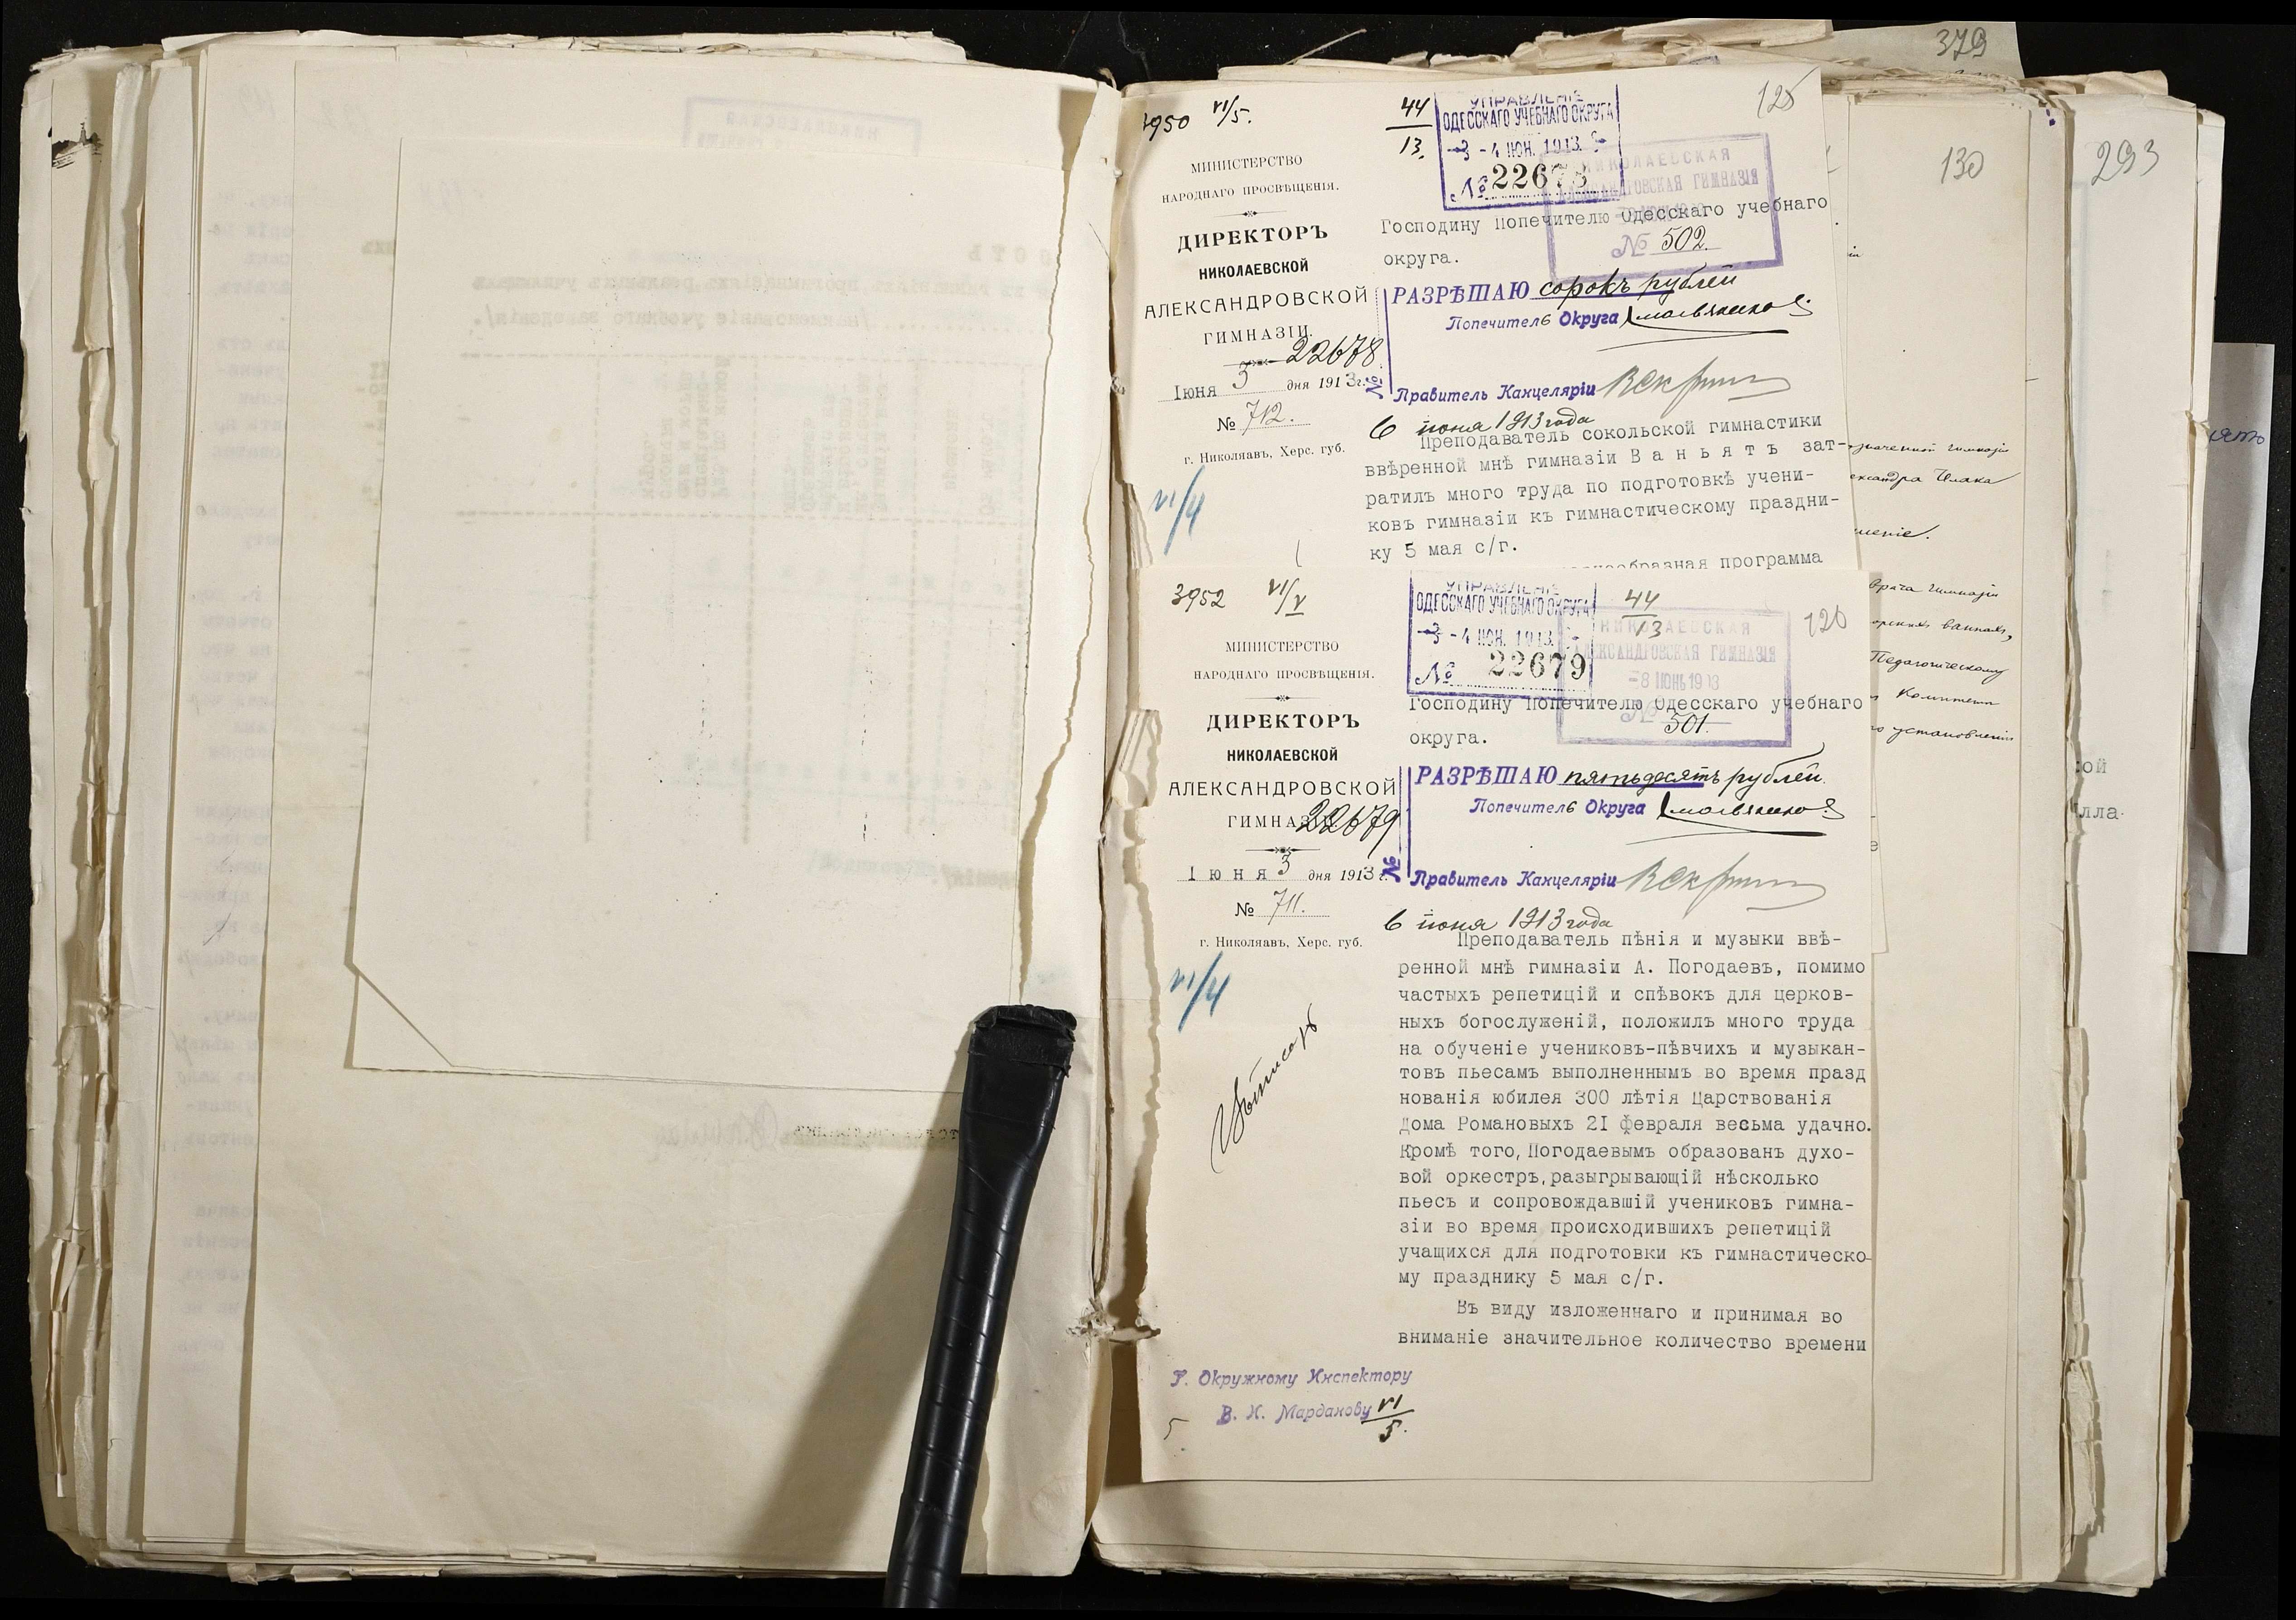 379
293
130
125
3950 VI/5.
44
13.
УПРАВЛЕНІЕ
ОДЕССКАГО УЧЕБНАГО ОКРУГА
-4 ІЮН. 1913.
№ 22678
НИКОЛАЕВСКАЯ
АЛЕКСАНДРОВСКАЯ ГИМНАЗІЯ
№ 502.
МИНИСТЕРСТВО
НАРОДНАГО ПРОСВѢЩЕНІЯ.
ДИРЕКТОРЪ
НИКОЛАЕВСКОЙ
АЛЕКСАНДРОВСКОЙ
ГИМНАЗІИ.
22678
Іюня 3 дня 1913 г.
№ 712.
г. Николяавъ, Херс. губ.
VI/4
Господину Попечителю Одесскаго учебнаго
округа.
РАЗРѢШАЮ сорокъ рублей
Попечитель Округа
№
Правитель Канцеляріи
6 іюня 1913 года
Преподаватель сокольской гимнастики
ввѣренной мнѣ гимназіи Ваньятъ зат-
ратилъ много труда по подготовкѣ учени-
ковъ гимназіи къ гимнастическому праздни-
ку 5 мая с/г.
программа
3952 VI/V
УПРАВЛЕНІЕ
ОДЕССКАГО УЧЕБНАГО ОКРУГА
-4 ІЮН. 1913.
№ 22679
44
13
126
НИКОЛАЕВСКАЯ
АЛЕКСАНДРОВСКАЯ ГИМНАЗІЯ
-8 ІЮНЬ 1913
№ 501.
МИНИСТЕРСТВО
НАРОДНАГО ПРОСВѢЩЕНІЯ.
ДИРЕКТОРЪ
НИКОЛАЕВСКОЙ
АЛЕКСАНДРОВСКОЙ
ГИМНАЗІИ.
22679
Іюня 3 дня 1913 г.
№ 711.
г. Николяавъ, Херс. губ.
VI/4
Господину Попечителю Одесскаго учебнаго
округа.
РАЗРѢШАЮ пятьдесятъ рублей.
Попечитель Округа
№
Правитель Канцеляріи
6 іюня 1913 года
Преподаватель пѣнія и музыки ввѣ-
ренной мнѣ гимназіи А. Погодаевъ, помимо
частыхъ репетицій и спѣвокъ для церков-
ныхъ богослуженій, положилъ много труда
на обученіе учениковъ-пѣвчихъ и музыкан-
товъ пьесамъ выполненнымъ во время празд
нованія юбилея 300 лѣтія Царствованія
Дома Романовыхъ 2I февраля весьма удачно.
Кромѣ того, Погодаевымъ образованъ духо-
вой оркестръ, разыгрывающій нѣсколько
пьесъ и сопровождавшій учениковъ гимна-
зіи во время происходившихъ репетицій
учащихся для подготовки къ гимнастическо-
му празднику 5 мая с/г.
Въ виду изложеннаго и принимая во
вниманіе значительное количество времени
Г. Окружному Инспектору
В. И. Марданову VI
5.
гимназіи
Педагогическому